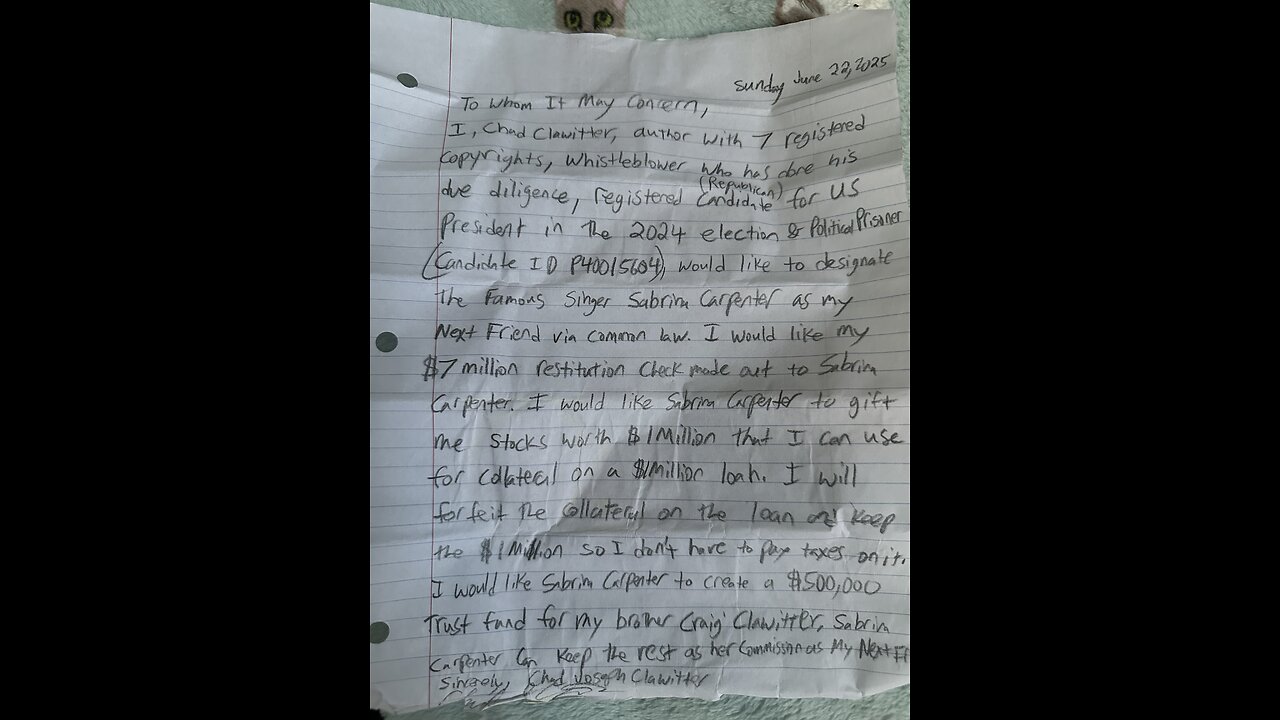 Sunday June 22, 2025
To Whom It May Concern,
I, Chad Clawitter, author with 7 registered
copyrights, Whistleblower who has done his
due diligence, registered (Republican) Candidate for US
President in the 2024 election & Political Prisoner
(Candidate ID P40015604), would like to designate
the Famous Singer Sabrina Carpenter as my
Next Friend via common law. I would like my
$7 million restitution check made out to Sabrina
Carpenter. I would like Sabrina Carpenter to gift
me stocks worth $1Million that I can use
for collateral on a $1Million loan. I will
forfeit the collateral on the loan and keep
the $1Million so I don't have to pay taxes on it.
I would like Sabrina Carpenter to create a $500,000
Trust fund for my brother Craig Clawitter. Sabrina
Carpenter can keep the rest as her commission as My Next Fr
sincerely, Chad Joseph Clawitter